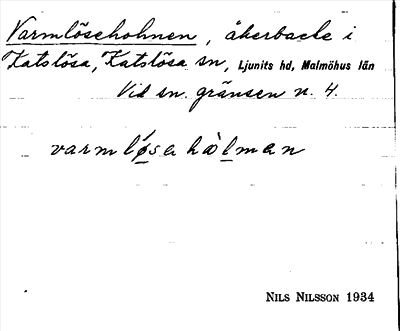 Varmlösehohnen, åkerbacke i
Katslösa, Katslösa sn, Ljunits hd, Malmöhus län
Vid sn. gränsen n. 4.
varmløsa hòlman
NILS NILSSON 1934